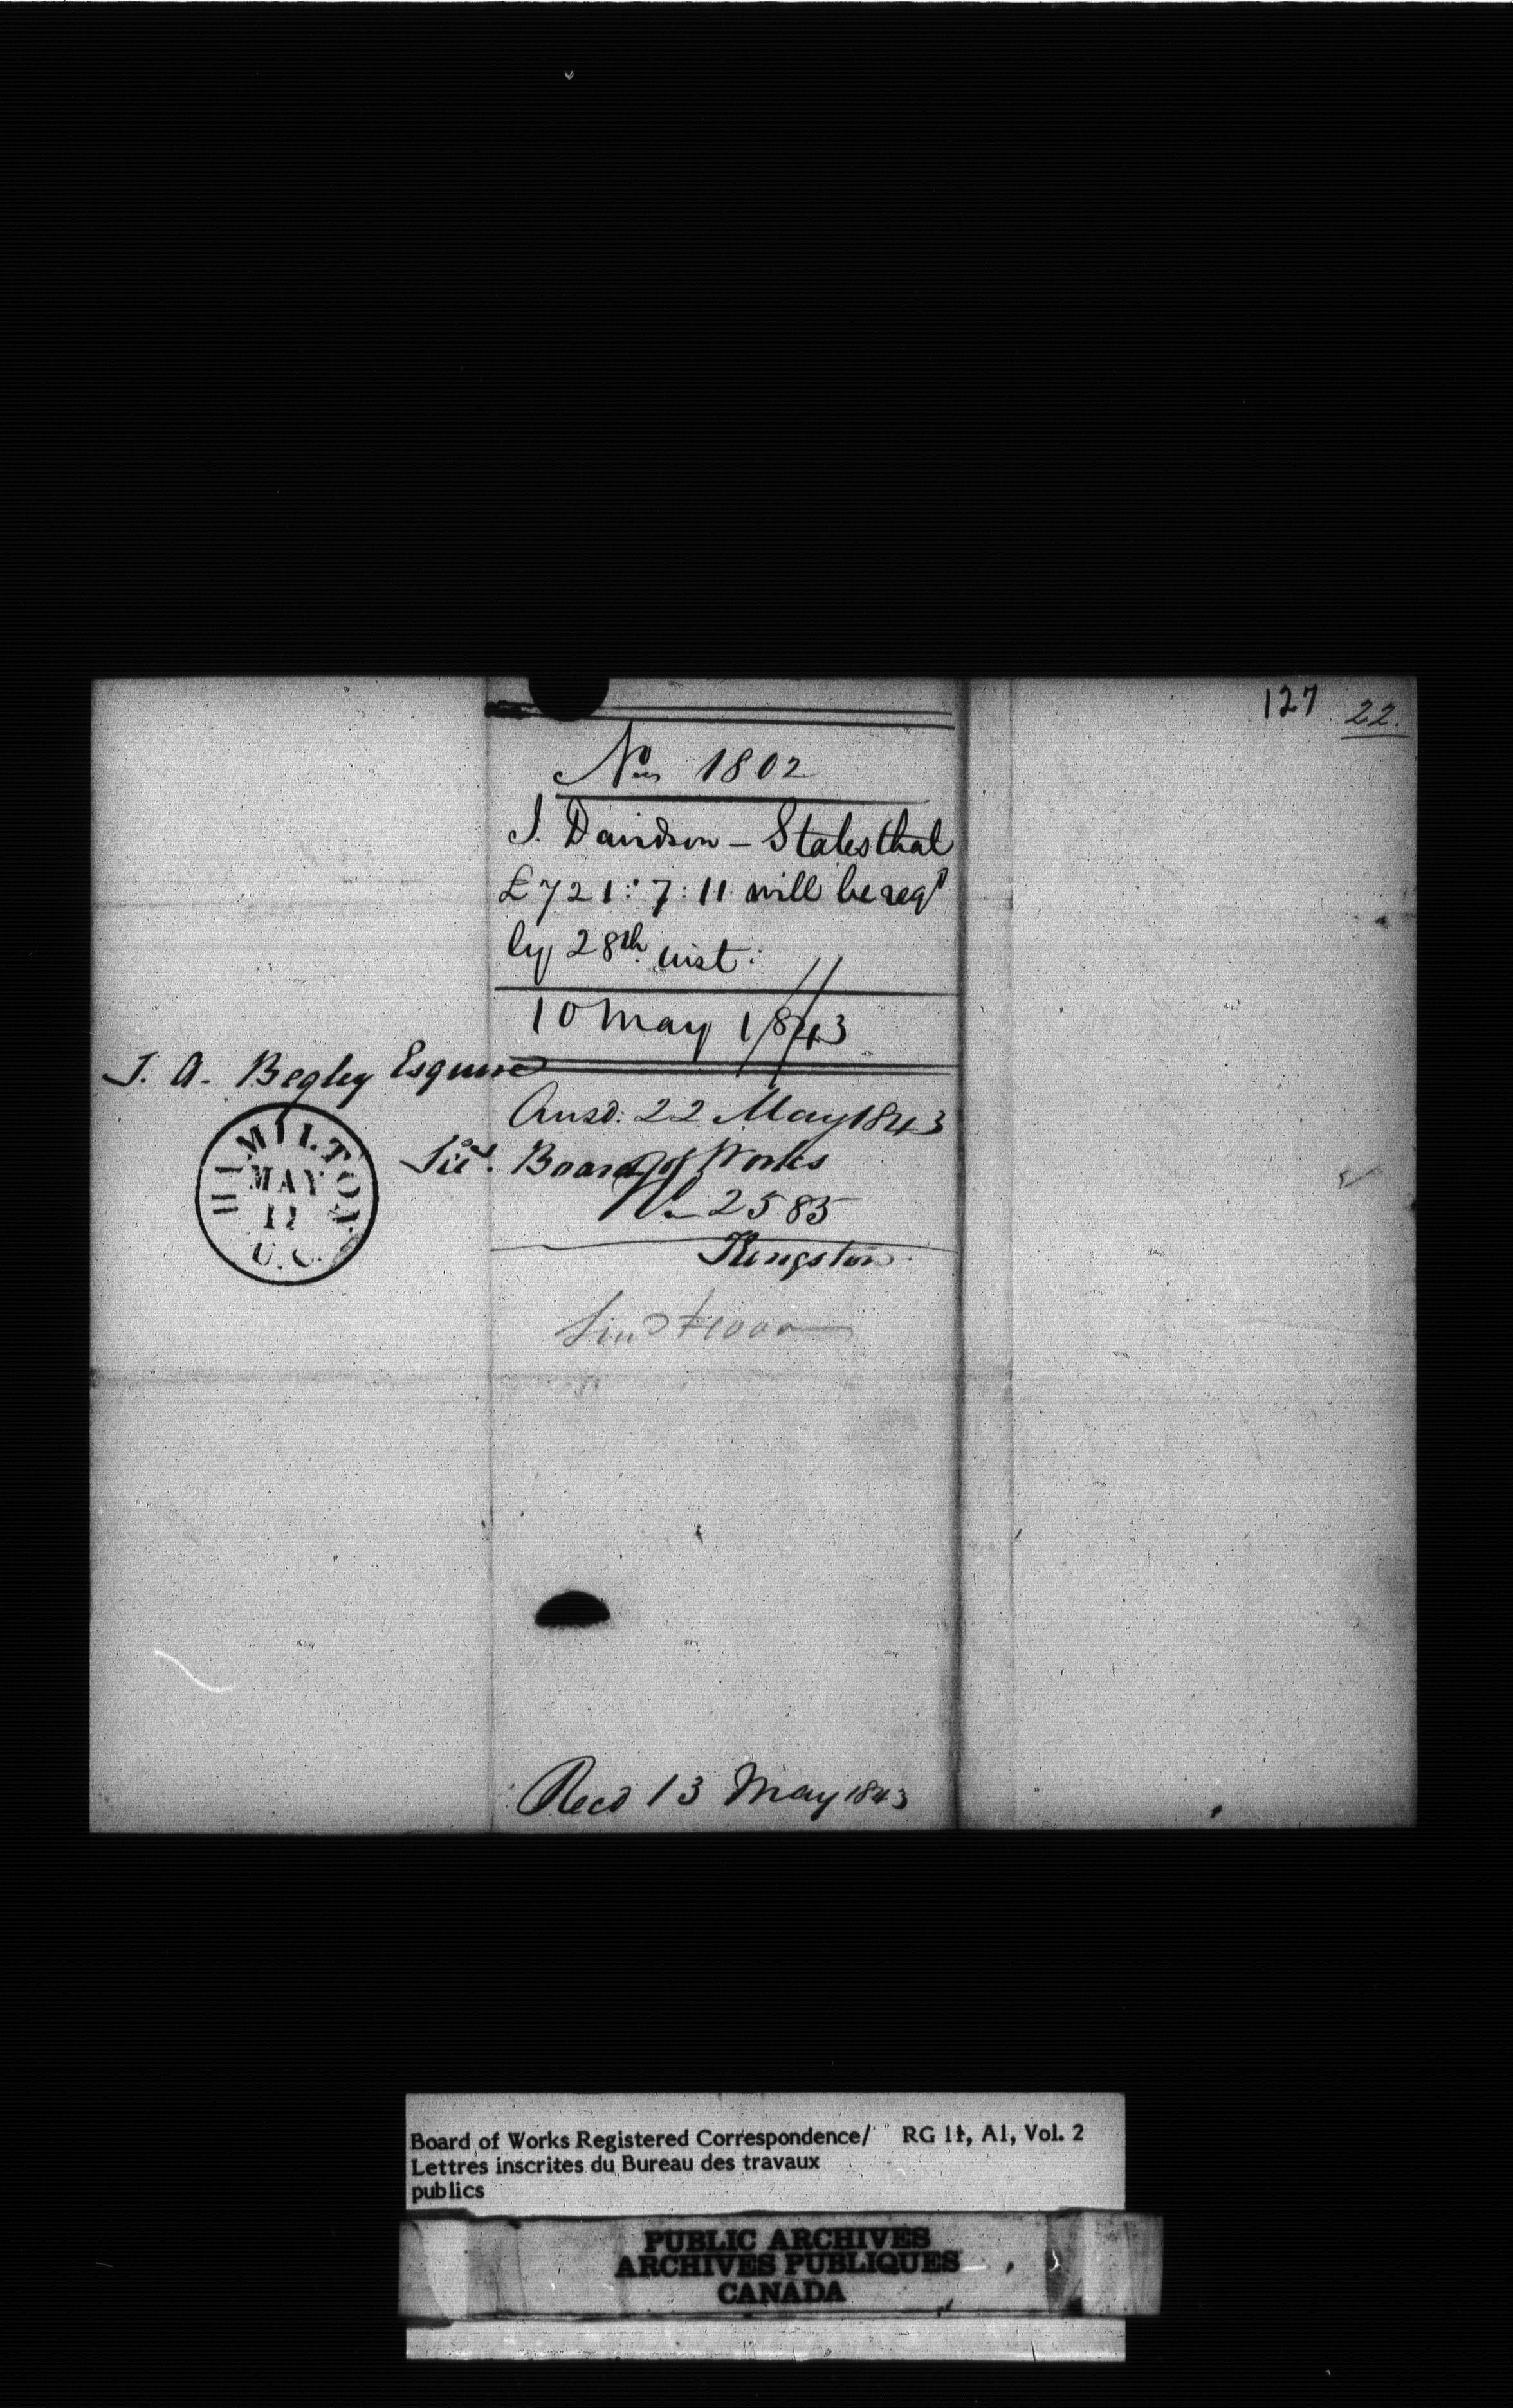 127 22.
No 1802
J. Davidson — States that
£721:7:11 will be reqd
by 28th inst:
10 May 1843
T. A. Begley Esquire
Ansd: 22 May 1843
Secy. Board of Works
No 2585
Kingston
HAMILTON
MAY
U.C.
Send £1000
Recd 13 May 1843
Board of Works Registered Correspondence/ RG 11, A1, Vol. 2
Lettres inscrites du Bureau des travaux
publics
PUBLIC ARCHIVES
ARCHIVES PUBLIQUES
CANADA